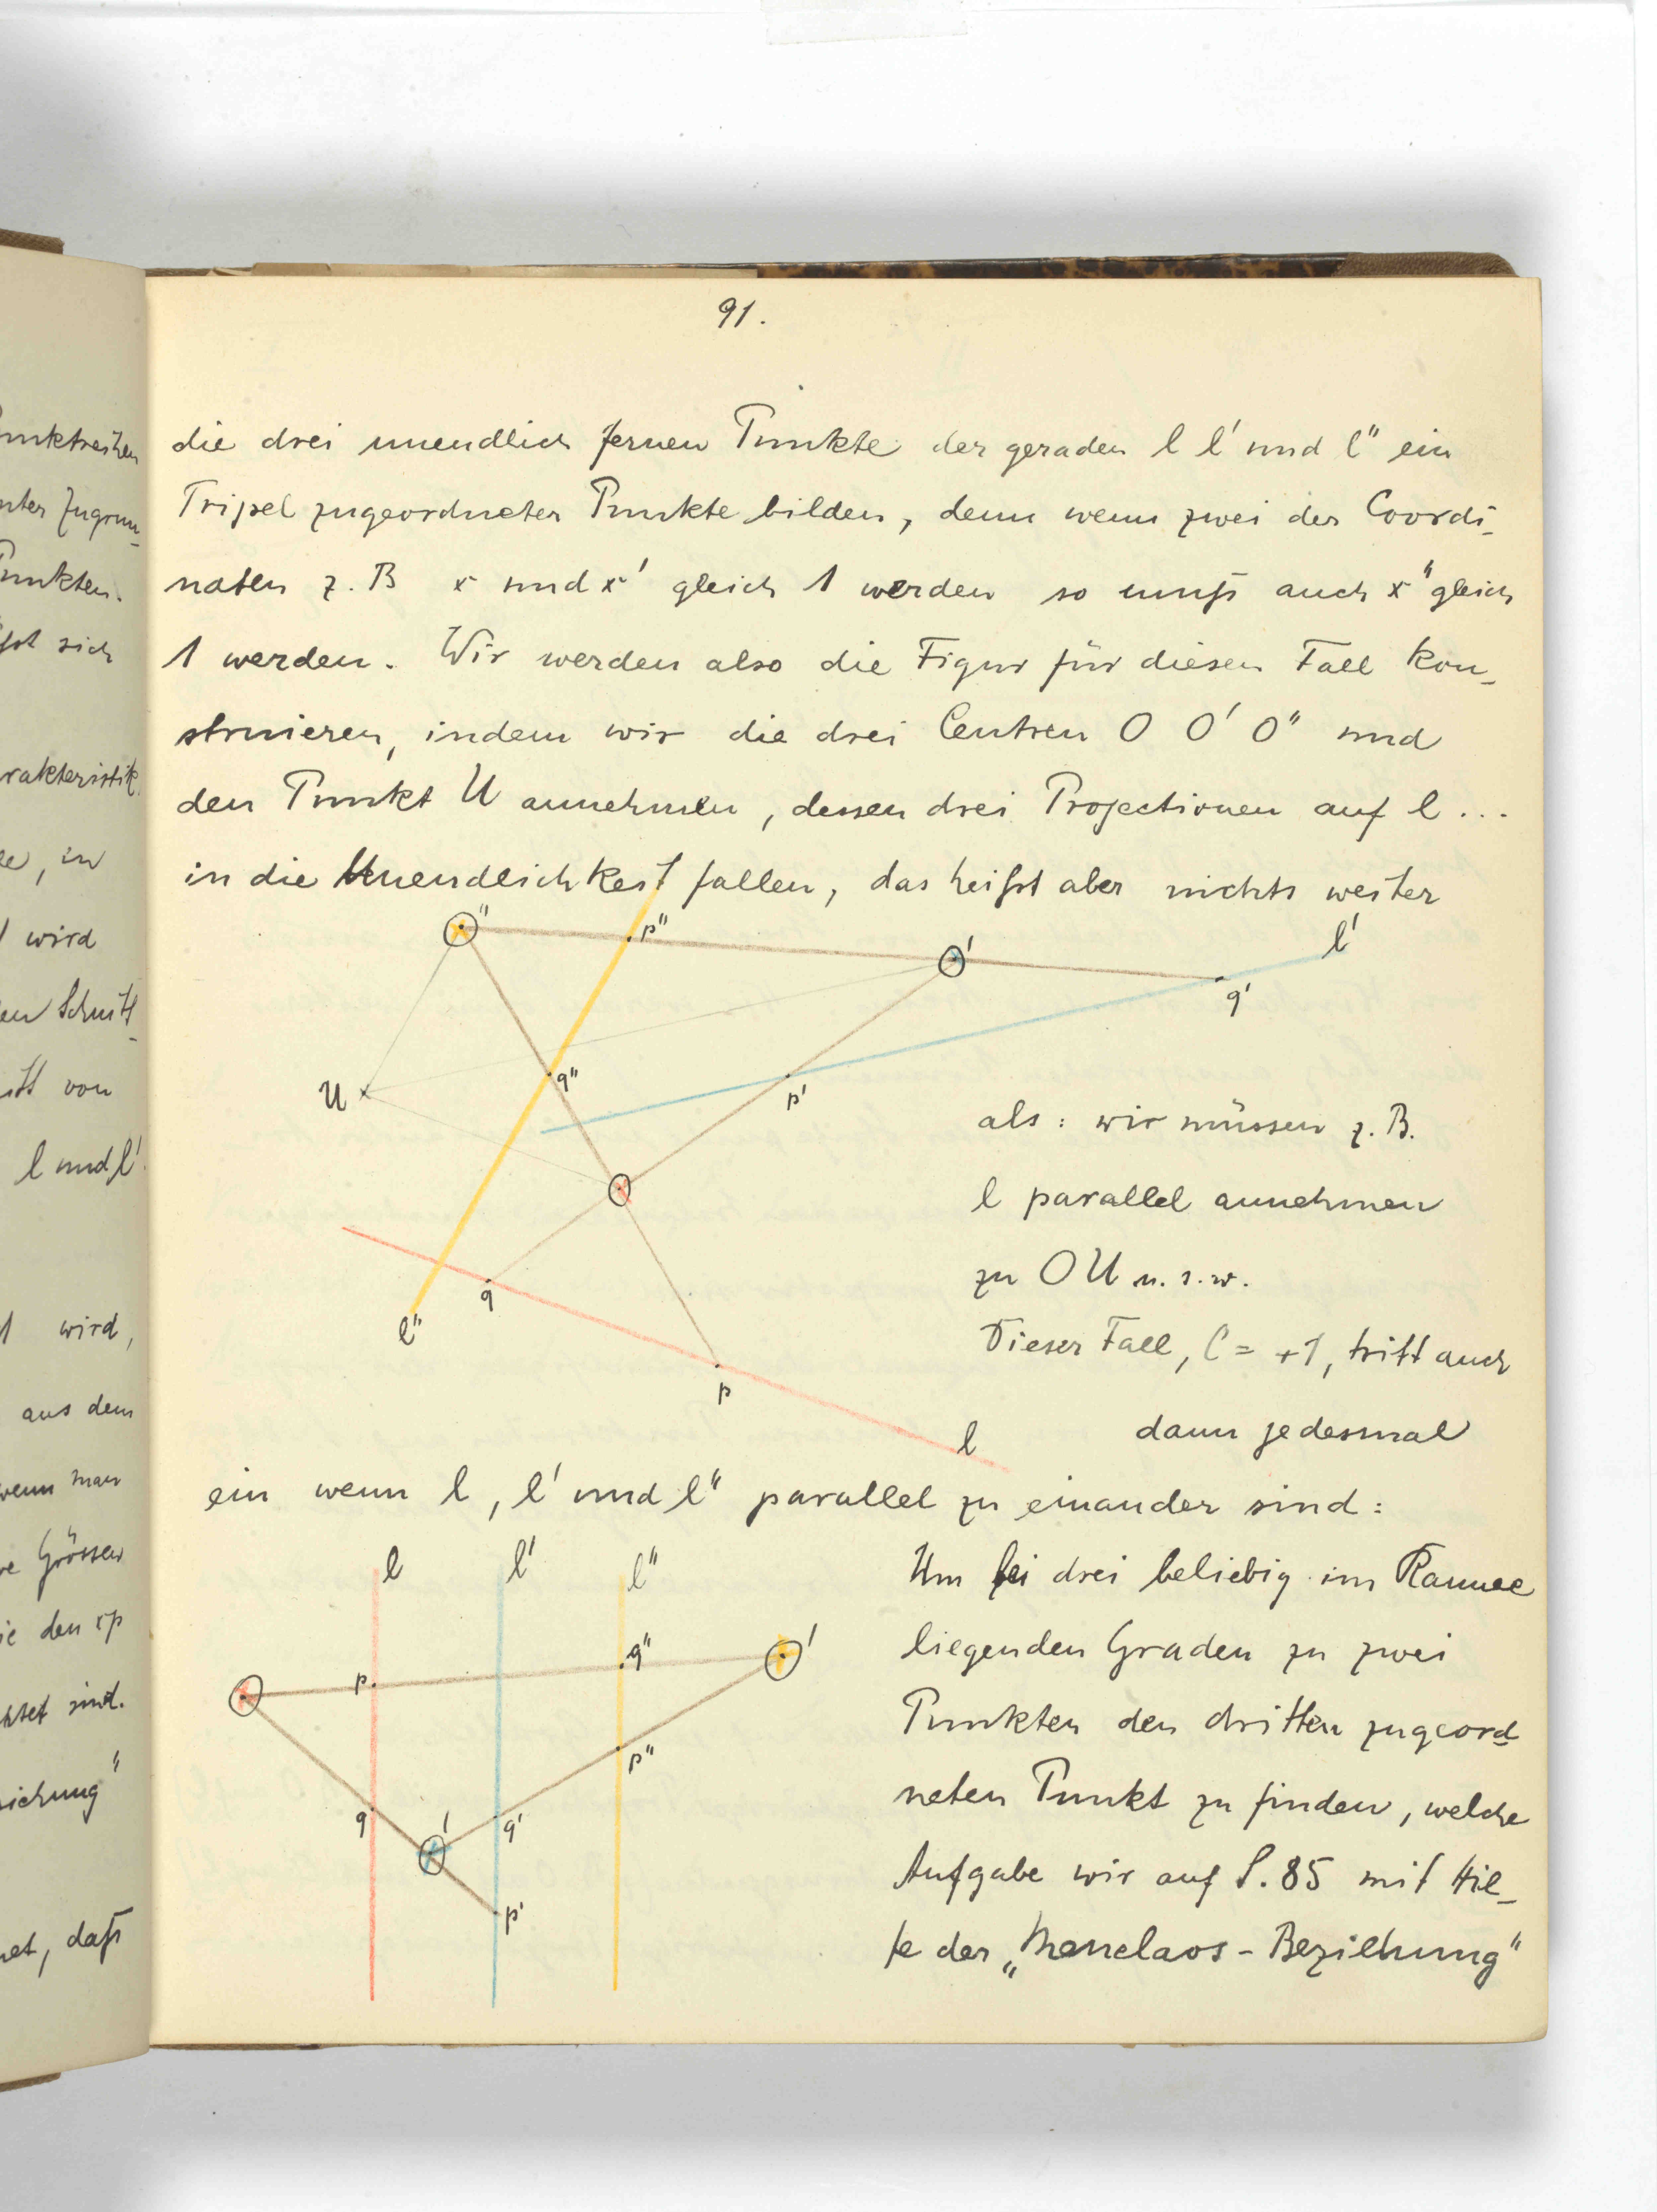 91.
die drei unendlich fernen Punkte der geraden l l' und l" ein
Tripel zugeordneter Punkte bilden, denn wenn zwei der Coordi-
naten z. B x und x' gleich 1 werden so muß auch x" gleich
1 werden. Wir werden also die Figur für diesen Fall kon-
struieren, indem wir die drei Centren O O' O" und
den Punkt U annehmen, dessen drei Projectionen auf l ...
in die Unendlichkeit fallen, das heißt aber nichts weiter
O" p" O' l'
q'
U q" p'
als: wir müssen z. B.
O
l parallel annehmen
q
zu OU u. s. w.
l"
Dieser Fall, C = +1, tritt auch
p
l
dann jedesmal
ein wenn l, l' und l" parallel zu einander sind:
l l' l"
Um bei drei beliebig im Raume
liegenden Graden zu zwei
O p q" O'
Punkten den dritten zugeord-
p"
neten Punkt zu finden, welche
q O' q'
Aufgabe wir auf S. 85 mit Hil-
p'
fe der „Menelaos-Beziehung"
unktreihen
nter Zugrun-
Punkten.
ßt sich
rakteristik
in
wird
en Schnitt
itt von
l und l'
1 wird,
aus dem
wenn man
re Grössen
ie den xp
chtet sind.
iehung"
net, daß